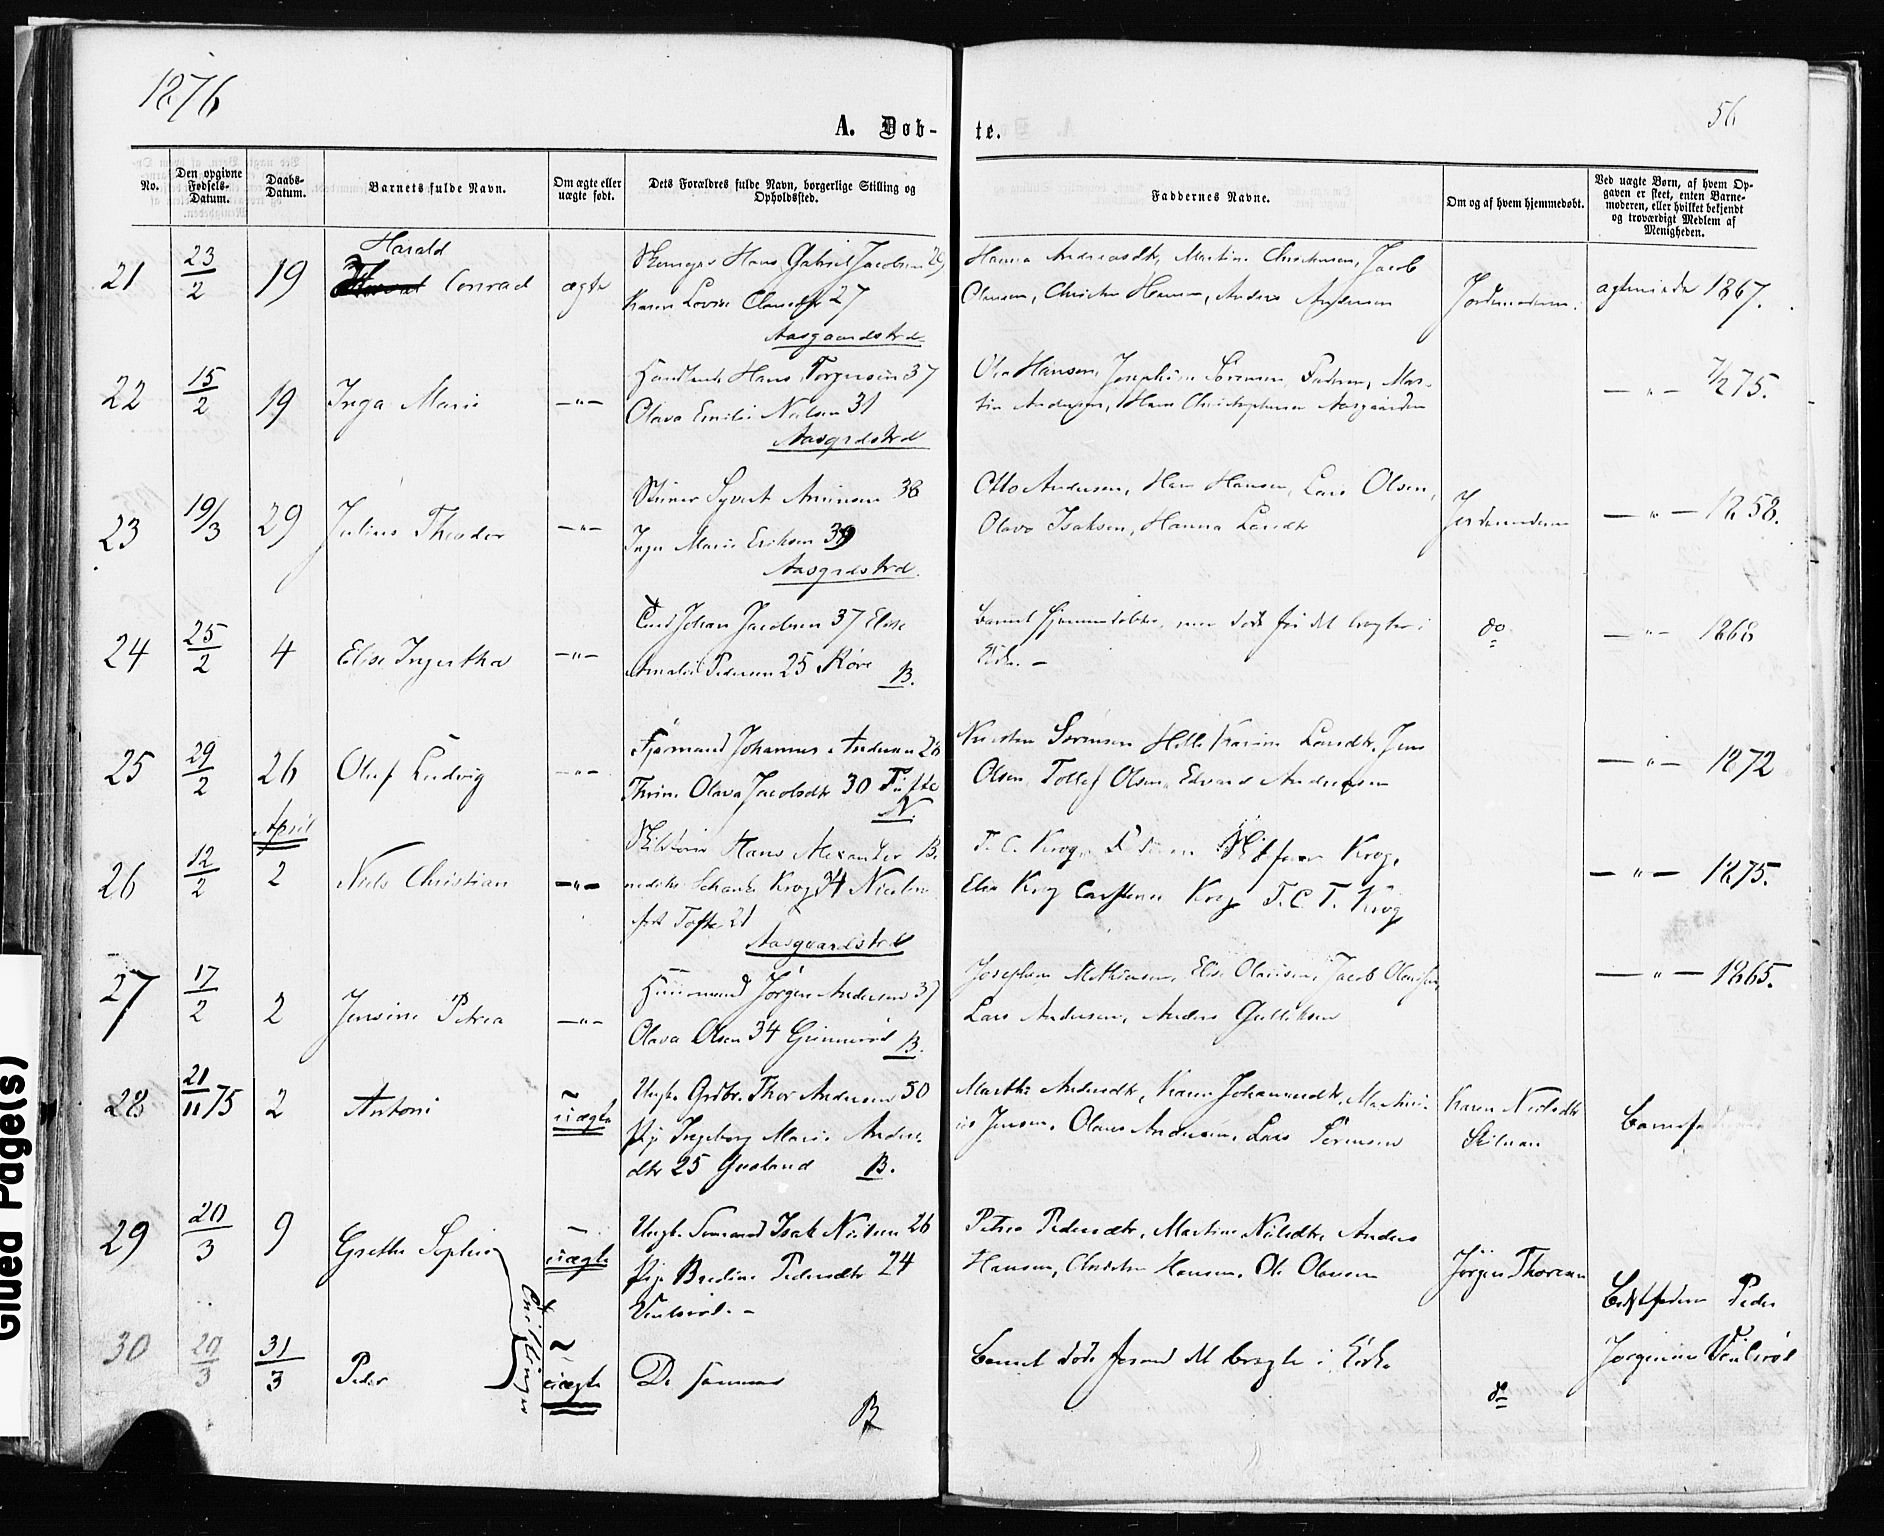 1876
56
A. Døb-
te.
No.
Den opgivne Fødsels-Datum.
Daabs-Datum.
Barnets fulde Navn.
Om ægte eller uægte født.
Dets Forældres fulde Navn, borgerlige Stilling og Opholdssted.
Faddernes Navne.
Om og af hvem hjemmedøbt.
Ved uægte Børn, af hvem Opgaven er skeet, enten Barnemoderen, eller hvilket bekjendt og troværdigt Medlem af Menigheden.
21 23/2 19
Harald
Conrad
ægte
Hans Gabriel Jacobsen 29
Karen Lovise Olausdtr 27
Aasgaardstrd
Hanna Andreasdtr, Martin Christensen, Jacob
Olausen, Christen Hansen, Anders Andersen
1867.
22 15/2 19 Inga Marie
—"—
Hans Torgersen 37
Olava Emilie Nielsen 31
Aasgrdstrd
Ole Hansen, Josephine Sørensen, Faderen, Mar-
tin Andersen, Hans Christophersen Aasgaarden
—"— 7/2 75.
23 19/3 29 Julius Theodor
—"—
Syvert 38
Inger Marie Eriksen 39
Aasgrdstrd.
Otto Andersen, Hans Hansen, Lars Olsen,
Olava Isaksen, Hanna Larsdtr
—"— 1858.
24 25/2 4 Elise Ingertha
—"—
Johan Jacobsen 37 Elise
Amalie Pedersen 25 Røre B.
Barnet hjemmedøbt, men døde før det bragtes i
Kirke. —
do
—"— 1868
25 29/2 26 Oluf Ludvig
—"—
Johannes Andersen 28
Thrine Olava Jacobsdtr 30 Tufte
N.
Sørensen Helle Karine Larsdtr, Jens
Olsen, Tollef Olsen, Edvard Andersen
—"— 1872
April
26 12/2 2 Niels Christian
—"—
Hans Alexander B.
Schanke Krog 34
Tofte 21
Aasgaardstrd
T. C. Krog, Krog,
Elise Krog Krog T. C. T. Krog
—"— 1875.
27 17/2 2 Jensine Petrea
—"—
Huusmand Jørgen Andersen 37
Olava Olsen 34 Gunnerød B.
Josephine Mathiesen, Elise Olausen, Jacob Olausen,
Lars Andersen, Anders Gulliksen
—"— 1865.
28 21/11 75 2 Antoni
uægte
Ungk. Grdbr. Thor Andersen 50
Pige Ingeborg Marie Anders-
dtr 25 Gusland B.
Marthe Andersdtr, Karen Johannesdtr, Martin-
ius Jensen, Olaus Andersen, Lars Sørensen
Karen Nielsdtr
29 20/3 9 Grethe Sophie
uægte
Ungk. Sømand Isak Nilsen 26
Pige Bredine Pedersdtr 24
Petrea Pedersdtr, Martine Nilsdtr, Anders
Hansen, Christen Hansen, Ole Olausen
Jørgen Thoresen
Bedstfaderen Peder
Jørgensen
Tvillinger
30 20/3 31/3 Peder
uægte
De samme
B
Barnet døde forend det bragtes i Kirke
do
Glued Page(s)